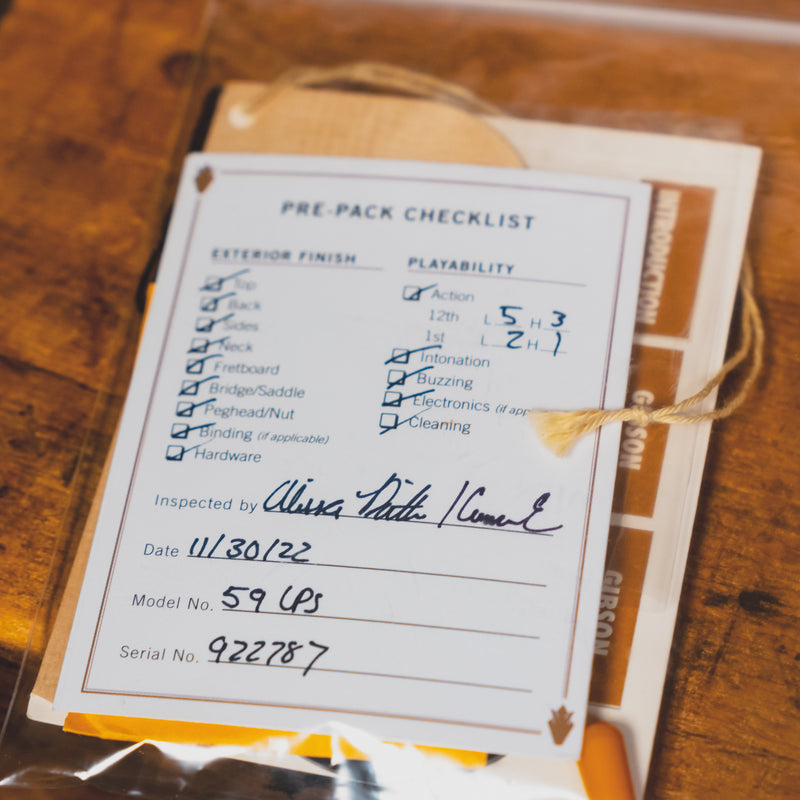 PRE-PACK CHECKLIST
EXTERIOR FINISH
Top
Back
Sides
Neck
Fretboard
Bridge/Saddle
Peghead/Nut
Binding (if applicable)
Hardware
PLAYABILITY
Action
12th L 5 H 3
1st L 2 H 1
Intonation
Buzzing
Electronics (if app
Cleaning
Inspected by Alissa
Date 11/30/22
Model No. 59 LPS
Serial No. 922787
INTRODUCTION
GIBSON
GIBSON